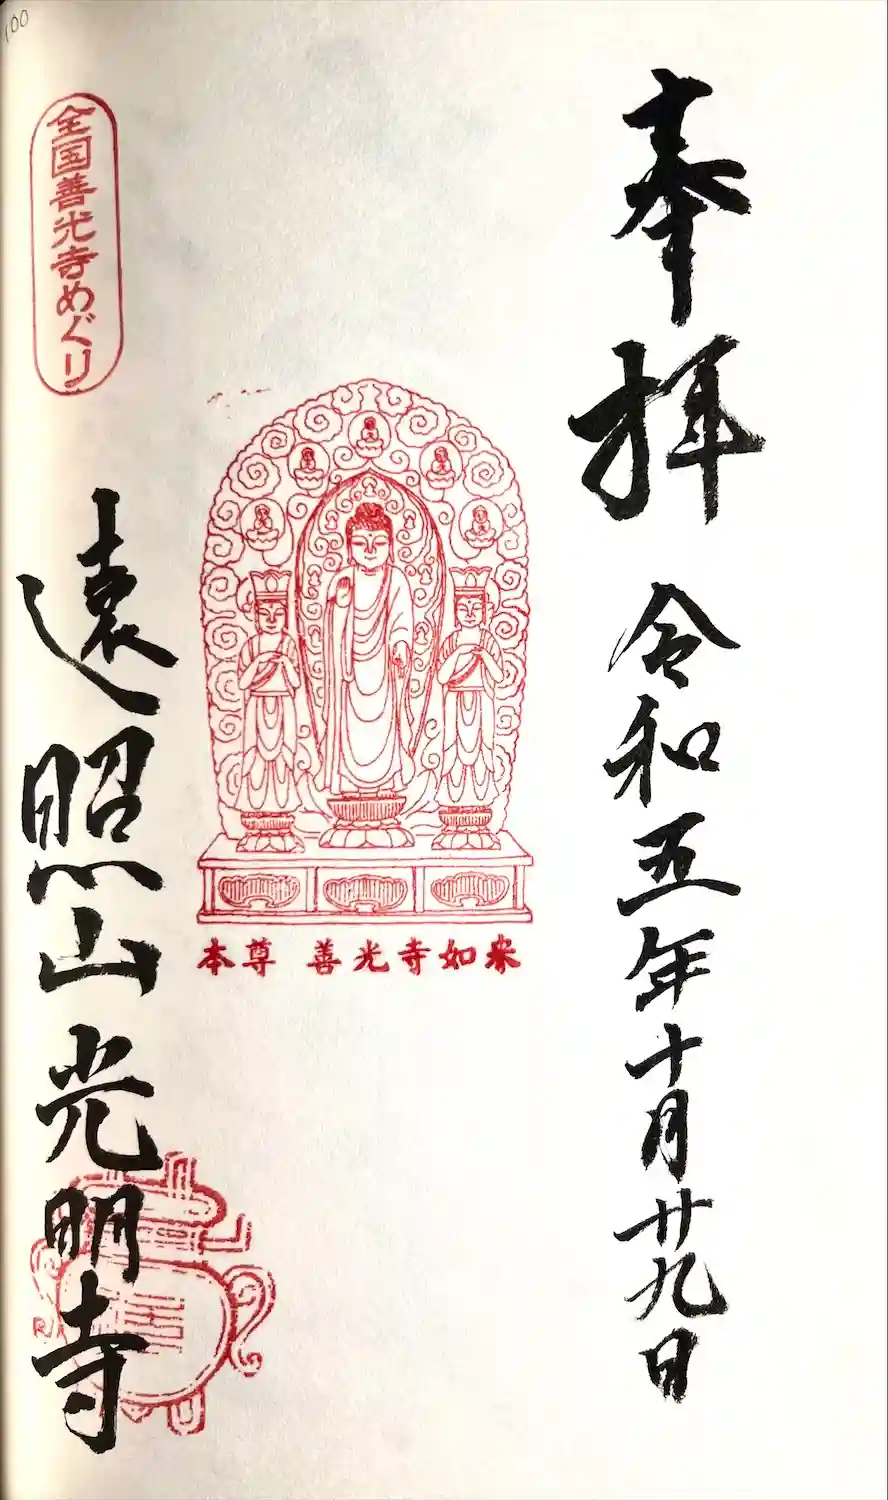 奉拝 令和五年十月廿九日
本尊 善光寺如来
全国善光寺めぐり
遠照山光明寺
100